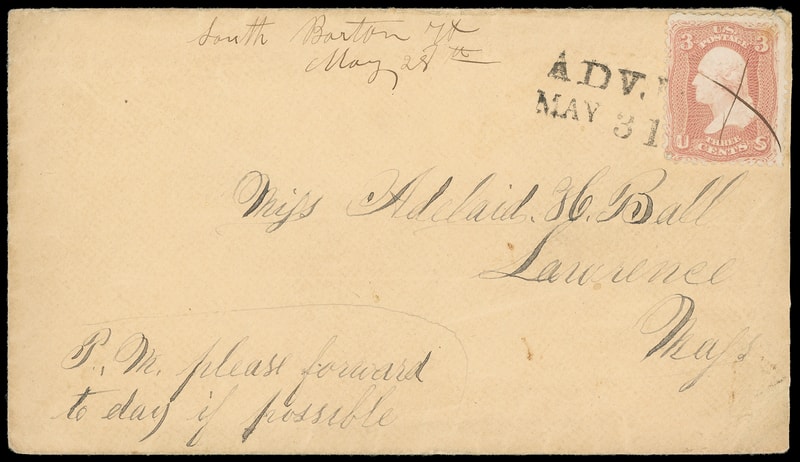 South Barton Vt
May 28th
ADV.
MAY 31
3 U.S. POSTAGE 3
U THREE CENTS S
Miss Adelaid. H. Ball
Lawrence
Mass
P. M. please forward
to day if possible